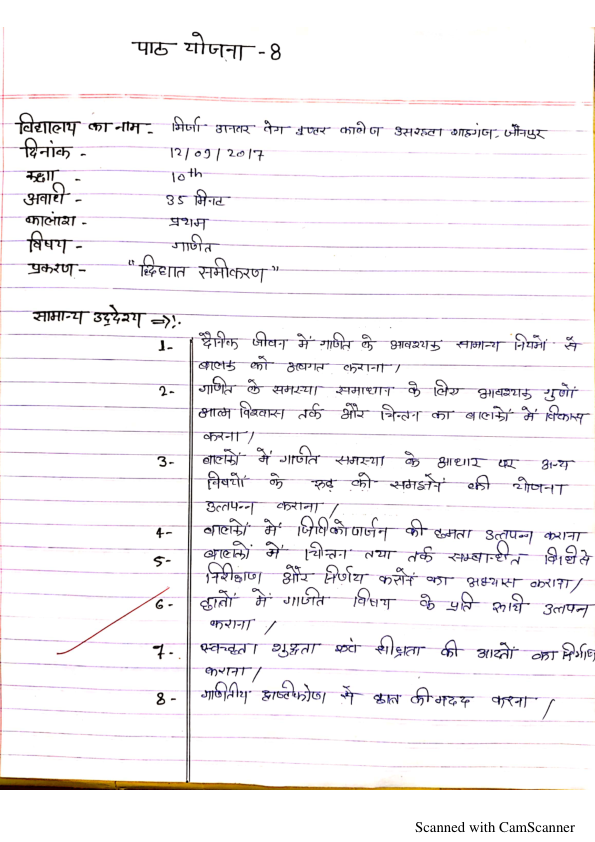 पाठ योजना - 8
विद्यालय का नाम - मिर्जा अनवर बेग इण्टर कालेज शाहगंज, जौनपुर
दिनांक - 12/09/2017
कक्षा - 10th
अवधि - 35 मिनट
कालांश - प्रथम
विषय - गणित
प्रकरण - "द्विघात समीकरण"
सामान्य उद्देश्य ⇒:-
1- दैनिक जीवन में गणित के आवश्यक सामान्य नियमों से
बालक को अवगत कराना /
2- गणित के समस्या समाधान के लिए आवश्यक गुणों
आत्म विश्वास तर्क और चिन्तन का बालकों में विकास
करना /
3- बालकों में गणित समस्या के आधार पर अन्य
विषयों के को समझने की योजना
उत्पन्न कराना /
4- बालकों में जिविकोपार्जन की क्षमता उत्पन्न कराना
5- बालकों में चिन्तन तथा तर्क सम्बन्धित
निरीक्षण और निर्णय करने का अभ्यास कराना /
6- छात्रों में गणित विषय के प्रति रूचि उत्पन्न
कराना /
7- स्वच्छता शुद्धता एवं शीघ्रता की आदतों का निर्माण
कराना /
8- गणितीय दृष्टिकोण से छात्र की मदद करना /
Scanned with CamScanner